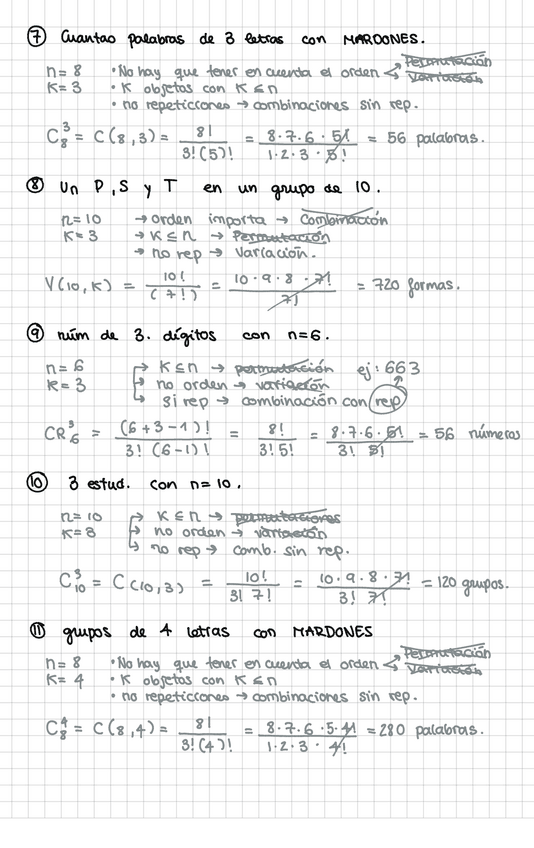 ⑦ Cuantao palabras de 3 letras con MARDONES.
n=8 • No hay que tener en cuenta el orden < Permutación
K=3 • K objetos con K ≤ n Variación
• no repeticiones → combinaciones sin rep.
C₈³ = C(8,3) = 8! / 3!(5)! = 8·7·6·5! / 1·2·3·5! = 56 palabras.
⑧ Un P,S y T en un grupo de 10.
n=10 → orden importa → Combinación
K=3 → K ≤ n → Permutación
→ no rep → Variación.
V(10,K) = 10! / (7!) = 10·9·8·7! / 7! = 720 formas.
⑨ núm de 3. dígitos con n=6.
n=6 → K≤n → permutación ej: 663
K=3 → no orden → variación
→ si rep → combinación con rep
CR₆³ = (6+3-1)! / 3!(6-1)! = 8! / 3!5! = 8·7·6·5! / 3! 5! = 56 números
⑩ 3 estud. con n=10.
n=10 → K ≤ n → permutaciones
K=3 → no orden → variación
→ no rep → comb. sin rep.
C₁₀³ = C(10,3) = 10! / 3! 7! = 10·9·8·7! / 3! 7! = 120 grupos.
⑪ grupos de 4 letras con MARDONES
n=8 • No hay que tener en cuenta el orden < Permutación
K=4 • K objetos con K ≤ n Variación
• no repeticiones → combinaciones sin rep.
C₈⁴ = C(8,4) = 8! / 3!(4)! = 8·7·6·5·4! / 1·2·3·4! = 280 palabras.